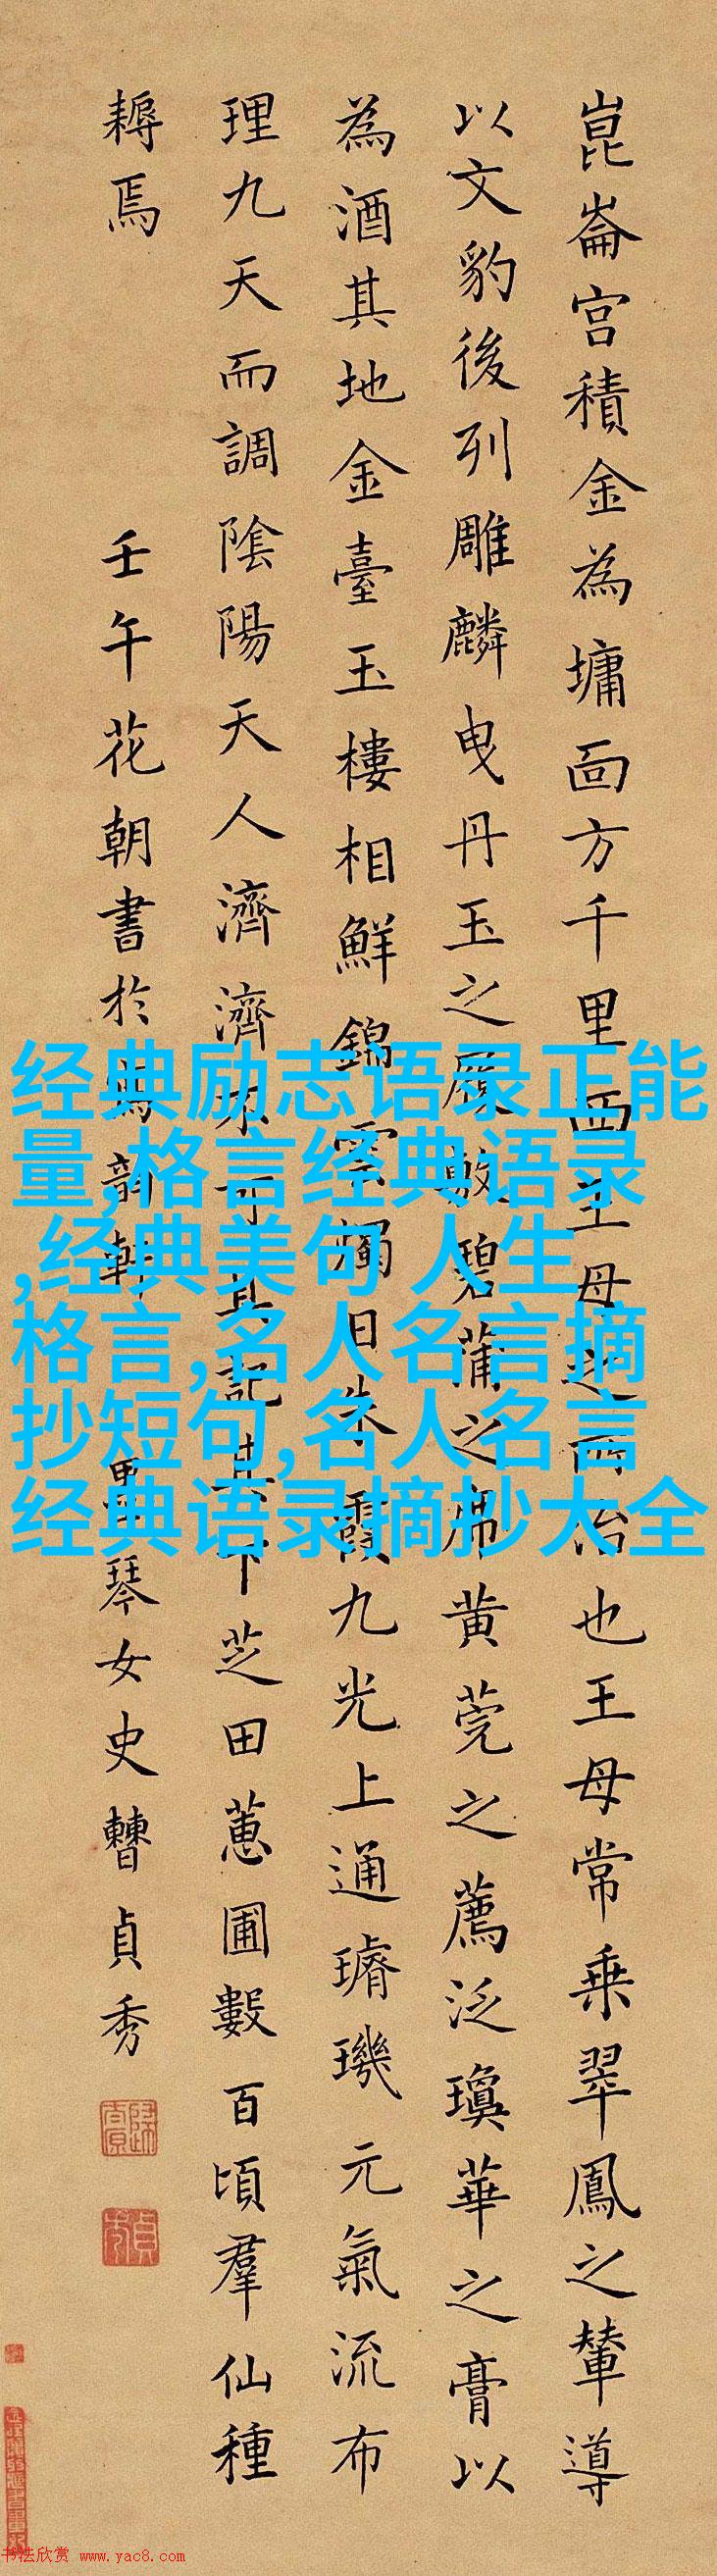 崑崙宮積金為墉面方千里西王母之所治也王母常乗翠鳳之輦導
以文豹後列雕麟曳丹玉之履敷碧蒲之席黄莞之薦泛瓊華之膏以
為酒其地金臺玉樓相鮮錦雲燭日朱霞九光上通璿璣元氣流布
理九天而調陰陽天人濟濟不可具記其下芝田蕙圃數百頃羣仙種
耨焉
壬午花朝書於寫韻軒 墨琴女史曹貞秀
经典励志语录正能
量,格言经典语录
,经典美句 人生
格言,名人名言摘
抄短句,名人名言
经典语录摘抄大全
书法欣赏 www.yac8.com